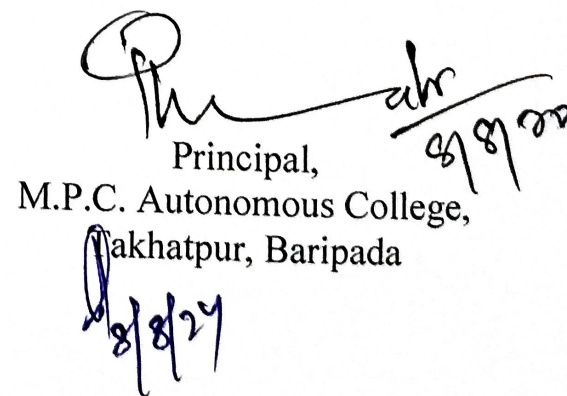 8/8/22
Principal,
M.P.C. Autonomous College,
Takhatpur, Baripada
8/8/24